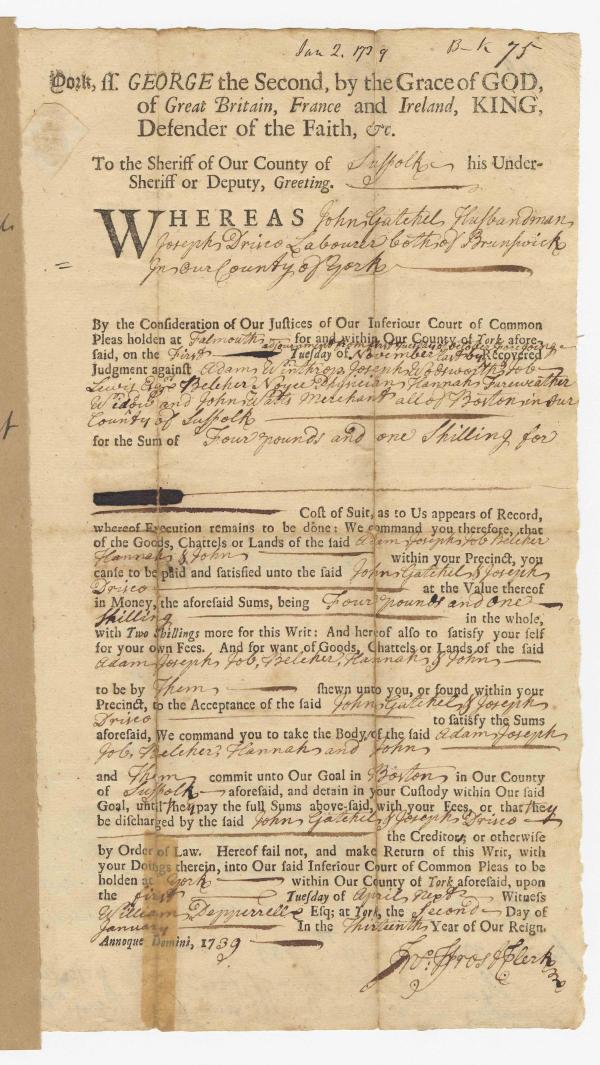 Jan 2. 1739 75
York, ss. GEORGE the Second, by the Grace of GOD,
of Great Britain, France and Ireland, KING,
Defender of the Faith, &c.
To the Sheriff of Our County of Suffolk his Under-
Sheriff or Deputy, Greeting.
WHEREAS John Gatchel Husbandman
Joseph Drisco Labourer both of Brunswick
In our County of York
By the Consideration of Our Justices of Our Inferiour Court of Common
Pleas holden at Falmouth for and within Our County of York afore-
said, on the First Tuesday of November last by Recovered
Judgment against Adam Winthrop Joseph Wadsworth & Job
Lewis Esqrs Belcher Noyce Physician Hannah Fareweather
Widow and John Watts Merchant all of Boston in our
County of Suffolk
for the Sum of Four pounds and one Shilling for
Cost of Suit, as to Us appears of Record,
whereof Execution remains to be done: We command you therefore, that
of the Goods, Chattels or Lands of the said Adam Joseph Job Belcher
Hannah & John within your Precinct, you
cause to be paid and satisfied unto the said John Gatchel & Joseph
Drisco at the Value thereof
in Money, the aforesaid Sums, being Four pounds and one
Shilling in the whole,
with Two Shillings more for this Writ: And hereof also to satisfy your self
for your own Fees. And for want of Goods, Chattels or Lands of the said
Adam Joseph Job, Belcher, Hannah & John
to be by Them shewn unto you, or found within your
Precinct, to the Acceptance of the said John Gatchel & Joseph
Drisco to satisfy the Sums
aforesaid, We command you to take the Body of the said Adam Joseph
Job, Belcher, Hannah and John
and Them commit unto Our Goal in Boston in Our County
of Suffolk aforesaid, and detain in your Custody within Our said
Goal, until they pay the full Sums above-said, with your Fees, or that they
be discharged by the said John Gatchel & Joseph Drisco
the Creditors, or otherwise
by Order of Law. Hereof fail not, and make Return of this Writ, with
your Doings therein, into Our said Inferiour Court of Common Pleas to be
holden at York within Our County of York aforesaid, upon
the first Tuesday of April next Witness
William Pepperrell Esq; at York, the Second Day of
January In the Thirteenth Year of Our Reign.
Annoque Domini, 1739
Jno. Frost Clerk